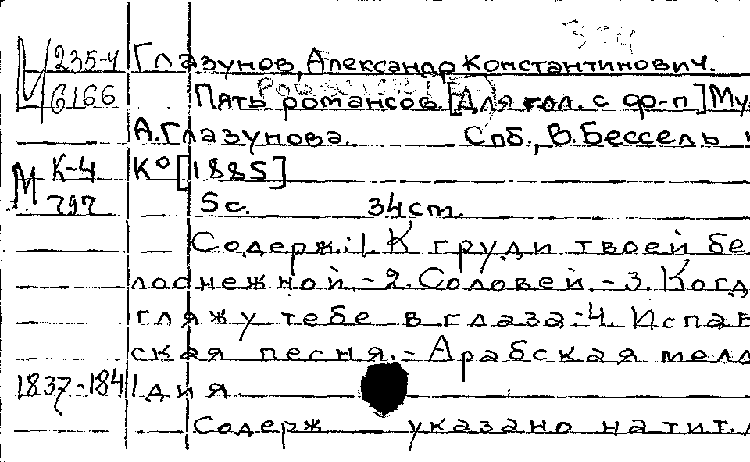 235-4 Глазунов, Александр Константинович.
6166 Пять романсов [Для гол. с фр-п] Му
А. Глазунова. Спб., В. Бессель
М К-4 К° [1885]
797 5с. 34cm.
Содерж.: 1. К груди твоей бе
лоснежной. - 2. Соловей. - 3. Когд
гляжу тебе в глаза. - 4. Испа
ская песня. - Арабская мело
1837-1841 дия
Содерж указано на тит. л